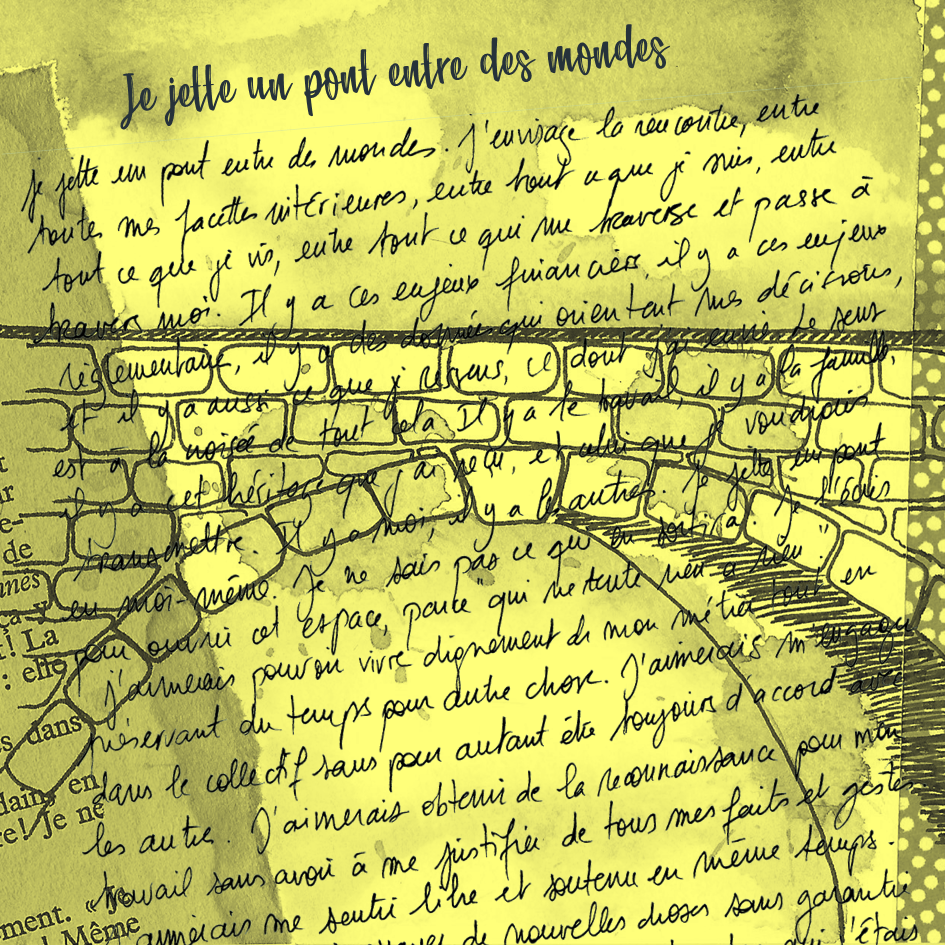 Je jette un pont entre des mondes
Je jette un pont entre des mondes. J'envisage la rencontre, entre
toutes mes facettes intérieures, entre tout ce que je suis, entre
tout ce que je vis, entre tout ce qui me traverse et passe à
travers moi. Il y a ces enjeux financiers, il y a ces enjeux
réglementaire, il y a des qui orientent mes décisions,
et il y a aussi ce que je ce dont j'ai envie. Le seuil
est à la croisée de tout cela. Il y a le travail, il y a la famille,
il y a cet héritage que j'ai reçu, et celui que je voudrais
transmettre. Il y a moi, il y a les autres. Je jette un pont
en moi-même. Je ne sais pas ce qui en sortira. Je l'écris
pour ouvrir cet espace, parce qui ne tente rien a rien.
J'aimerais pouvoir vivre dignement de mon métier tout en
préservant du temps pour autre chose. J'aimerais m'engager
dans le collectif sans pour autant être toujours d'accord avec
les autres. J'aimerais obtenir de la reconnaissance pour mon
travail sans avoir à me justifier de tous mes faits et gestes.
J'aimerais me sentir libre et soutenu en même temps.
de nouvelles choses sans garantie
j'étais
ar
de
nnes
ça-y
! La
: elle
s dans
dans en
e! Je ne
ement. «Je
! Même